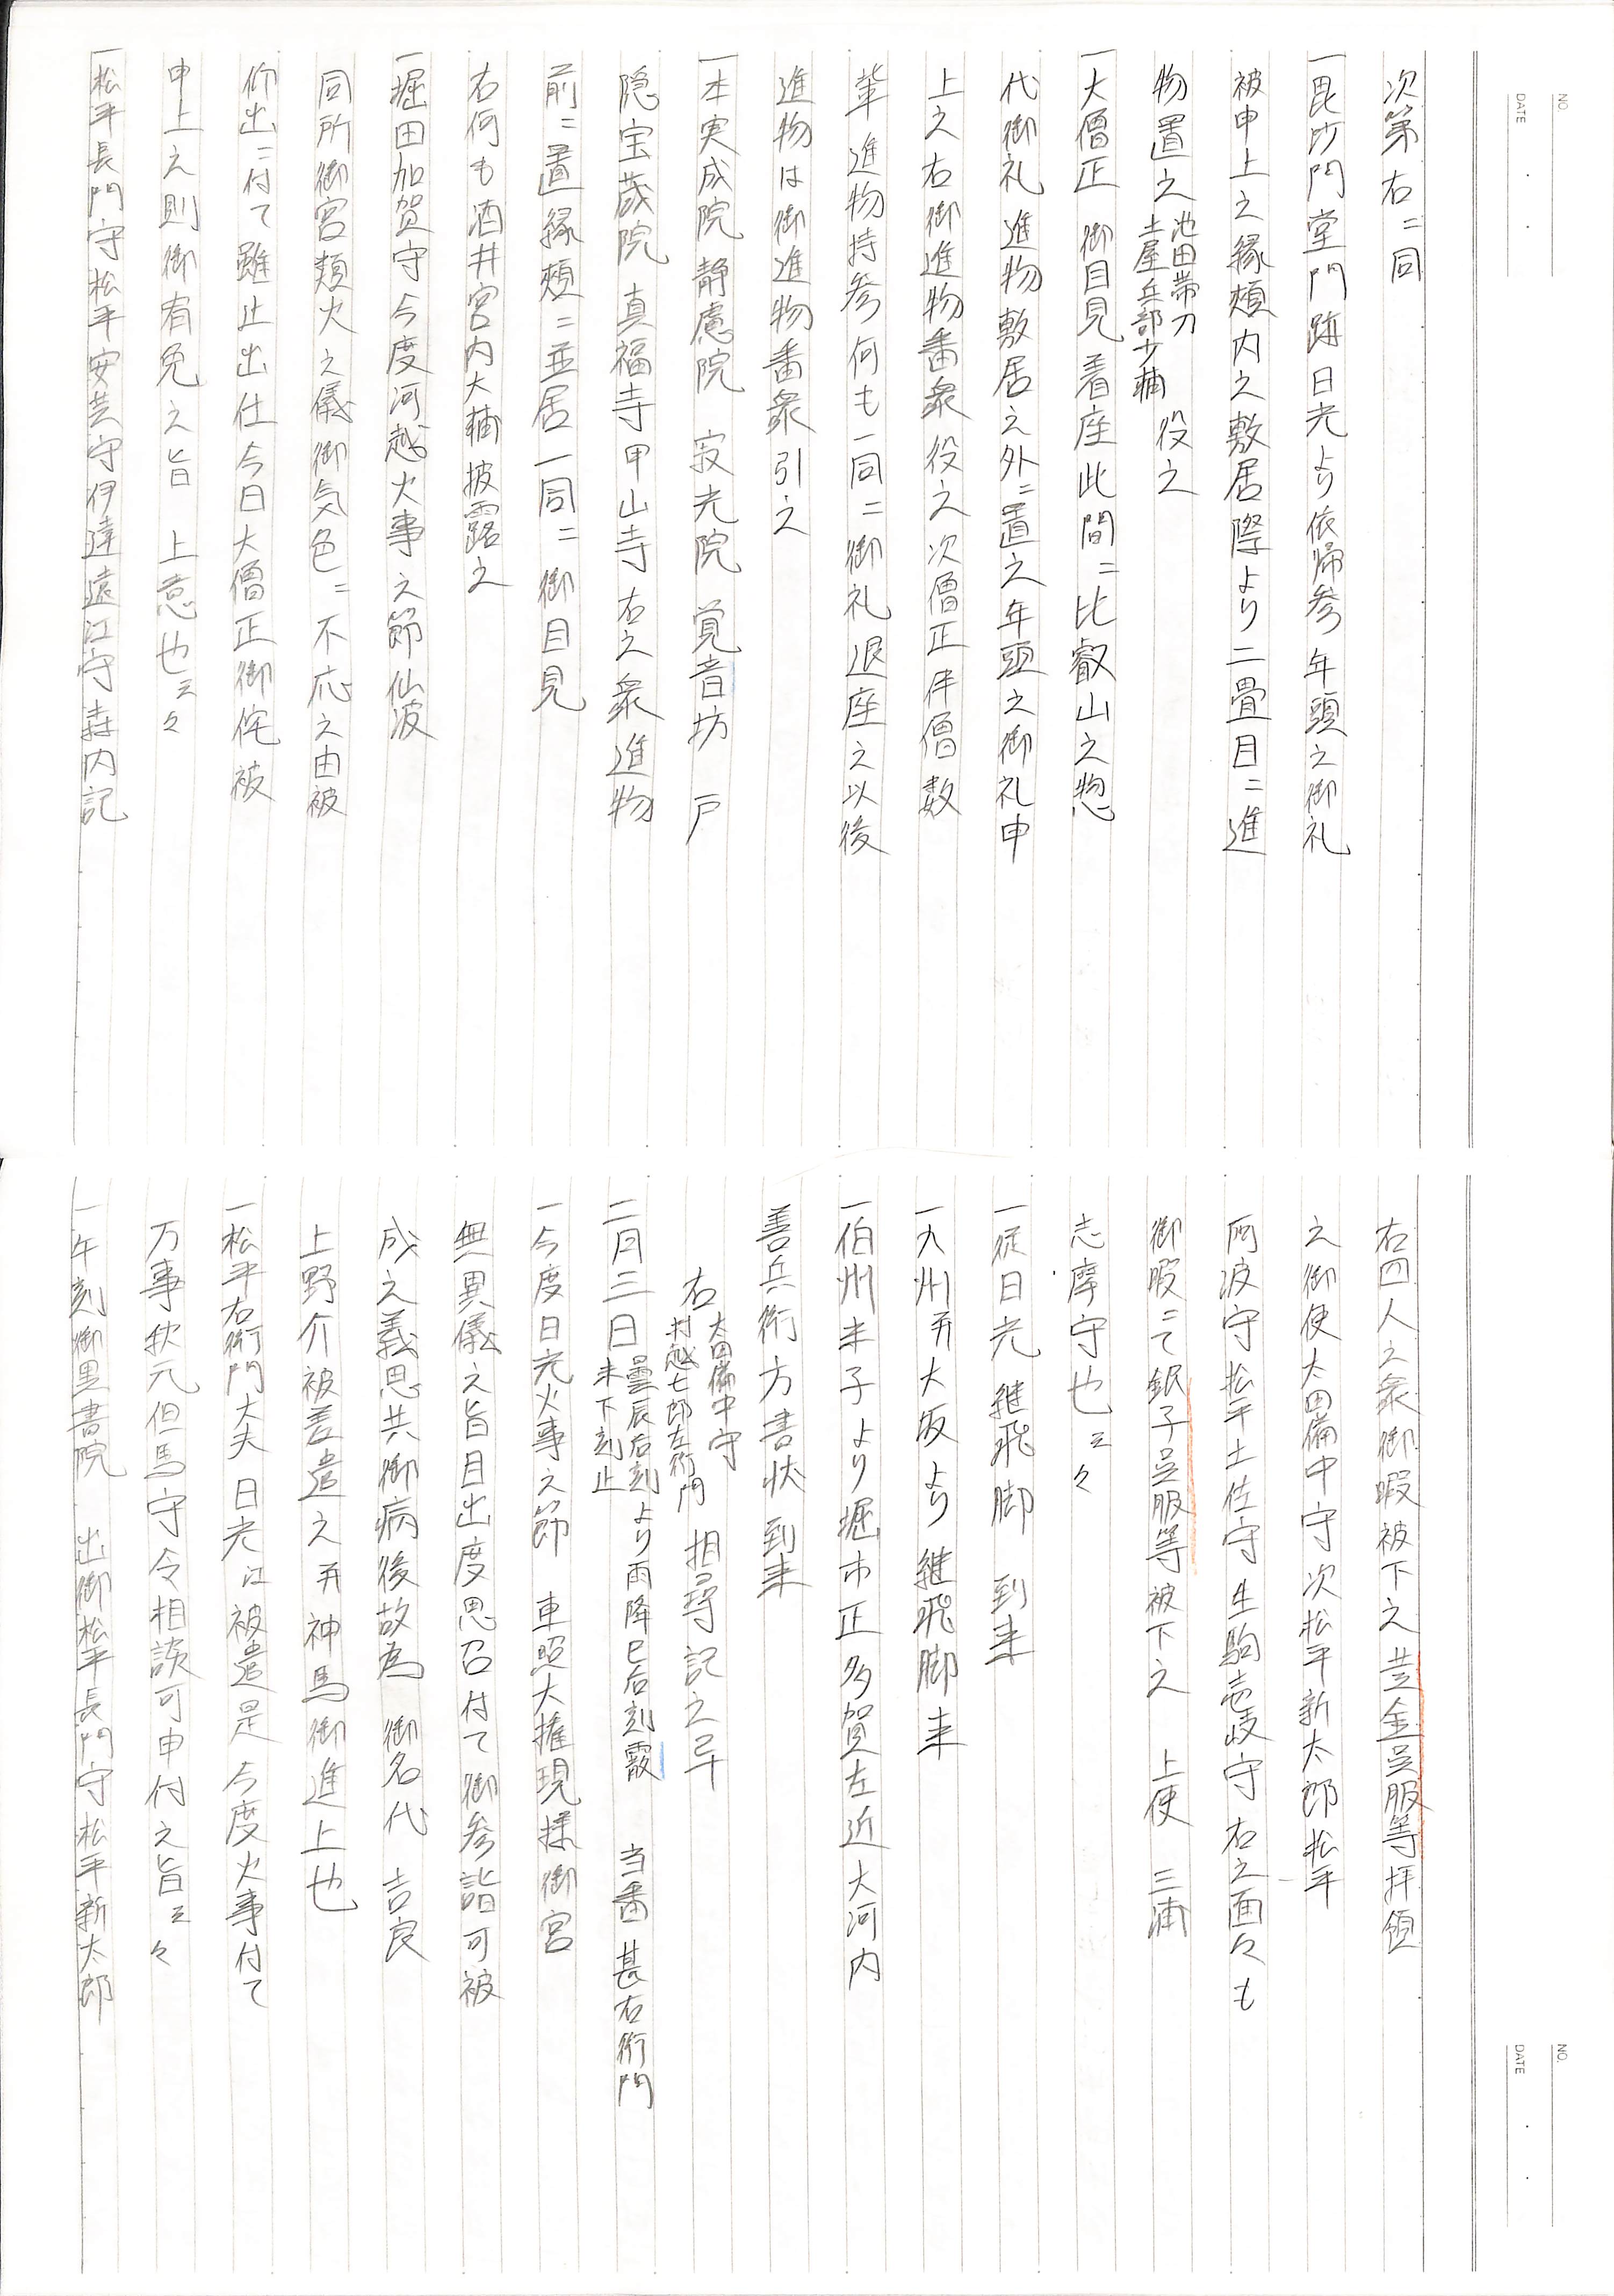 NO.
DATE
次第右ニ同
一毘沙門堂門跡日光より依帰参年頭之御礼
被申上之縁頬内之敷居際より二畳目ニ進
物置之 池田帯刀 土屋兵部少輔 役之
一大僧正 御目見着座此間ニ比叡山之惣
代御礼進物敷居之外ニ置之年頭之御礼申
上之右御進物番衆役之次僧正伴僧数
輩進物持参何も一同ニ御礼退座之以後
進物は御進物番衆引之
一本実成院 静慮院 寂光院 覚音坊 戸
隠宝蔵院 真福寺 甲山寺 右之衆進物
前ニ置縁頬ニ並居一同ニ 御目見
右何も酒井宮内大輔披露之
一堀田加賀守今度河越火事之節仙波
同所御宮類火之儀御気色ニ不応之由被
仰出ニ付て雖止出仕今日大僧正御侘被
申上之則御有免之旨 上意也云々
一松平長門守松平安芸守伊達遠江守森内記
NO.
DATE
右四人之衆御暇被下之黄金呉服等拝領
之御使太田備中守次松平新太郎松平
阿波守松平土佐守生駒壱岐守右之面々も
御暇ニて銀子呉服等被下之 上使 三浦
志摩守也云々
一従日光 継飛脚 到来
一九州并大坂より継飛脚来
一伯州米子より堀市正多賀左近大河内
善兵衛方書状 到来
右 太田備中守 村越七郎左衛門 相尋記之畢
二月三日 曇辰后刻より雨降巳后刻霰 未下刻止 当番 甚右衛門
一今度日光火事之節 東照大権現様御宮
無異儀之旨目出度思召付て御参詣可被
成之義思共御病後故為 御名代 吉良
上野介被差遣之并神馬御進上也
一松平右衛門大夫日光江被遣是今度火事付て
万事秋元但馬守令相談可申付之旨云々
一午刻御黒書院 出御松平長門守松平新太郎